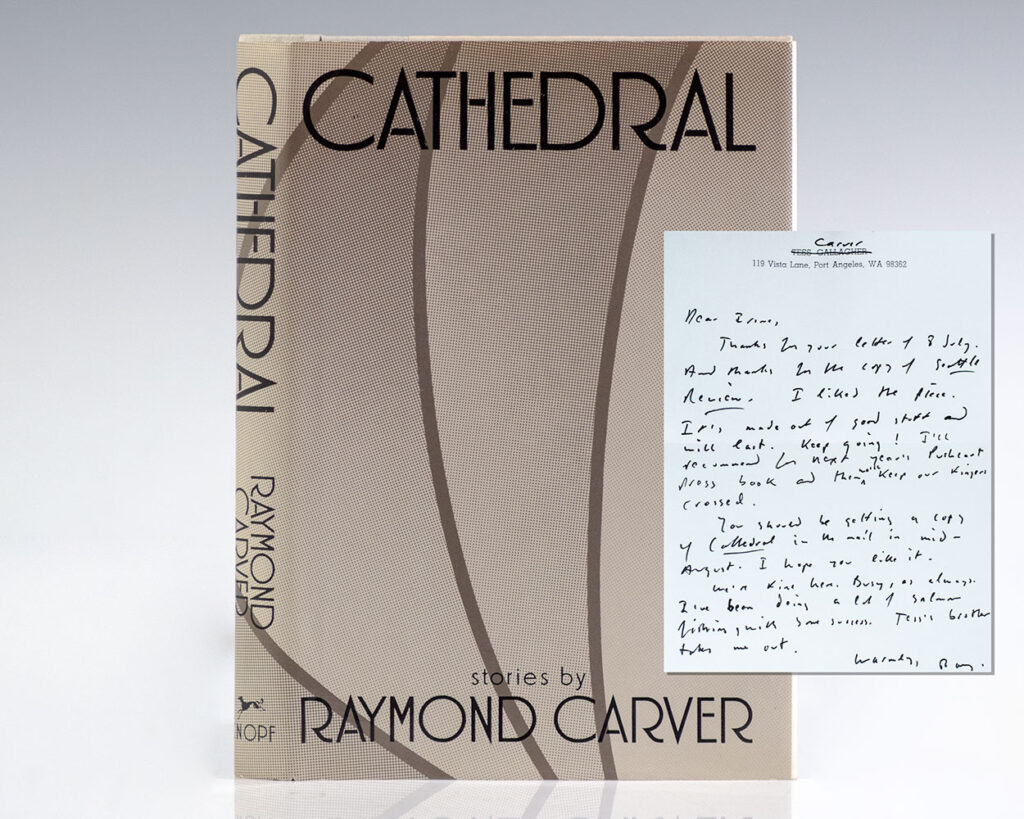 CATHEDRAL
stories by
RAYMOND CARVER
CATHEDRAL
RAYMOND
CARVER
NOPF
Carver
TESS GALLAGHER
119 Vista Lane, Port Angeles, WA 98362
Dear Irene,
Thanks for your letter of 8 July.
And thanks for the copy of Seattle
Review. I liked the piece.
It's made out of good stuff and
will last. Keep going! I'll
recommend for next year's Pushcart
Press book and then we'll keep our fingers
crossed.
You should be getting a copy
of Cathedral in the mail in mid-
August. I hope you like it.
We're fine here. Busy, as always.
I've been doing a lot of salmon
fishing, with some success. Tess's brother
takes me out.
Warmly, Ray.